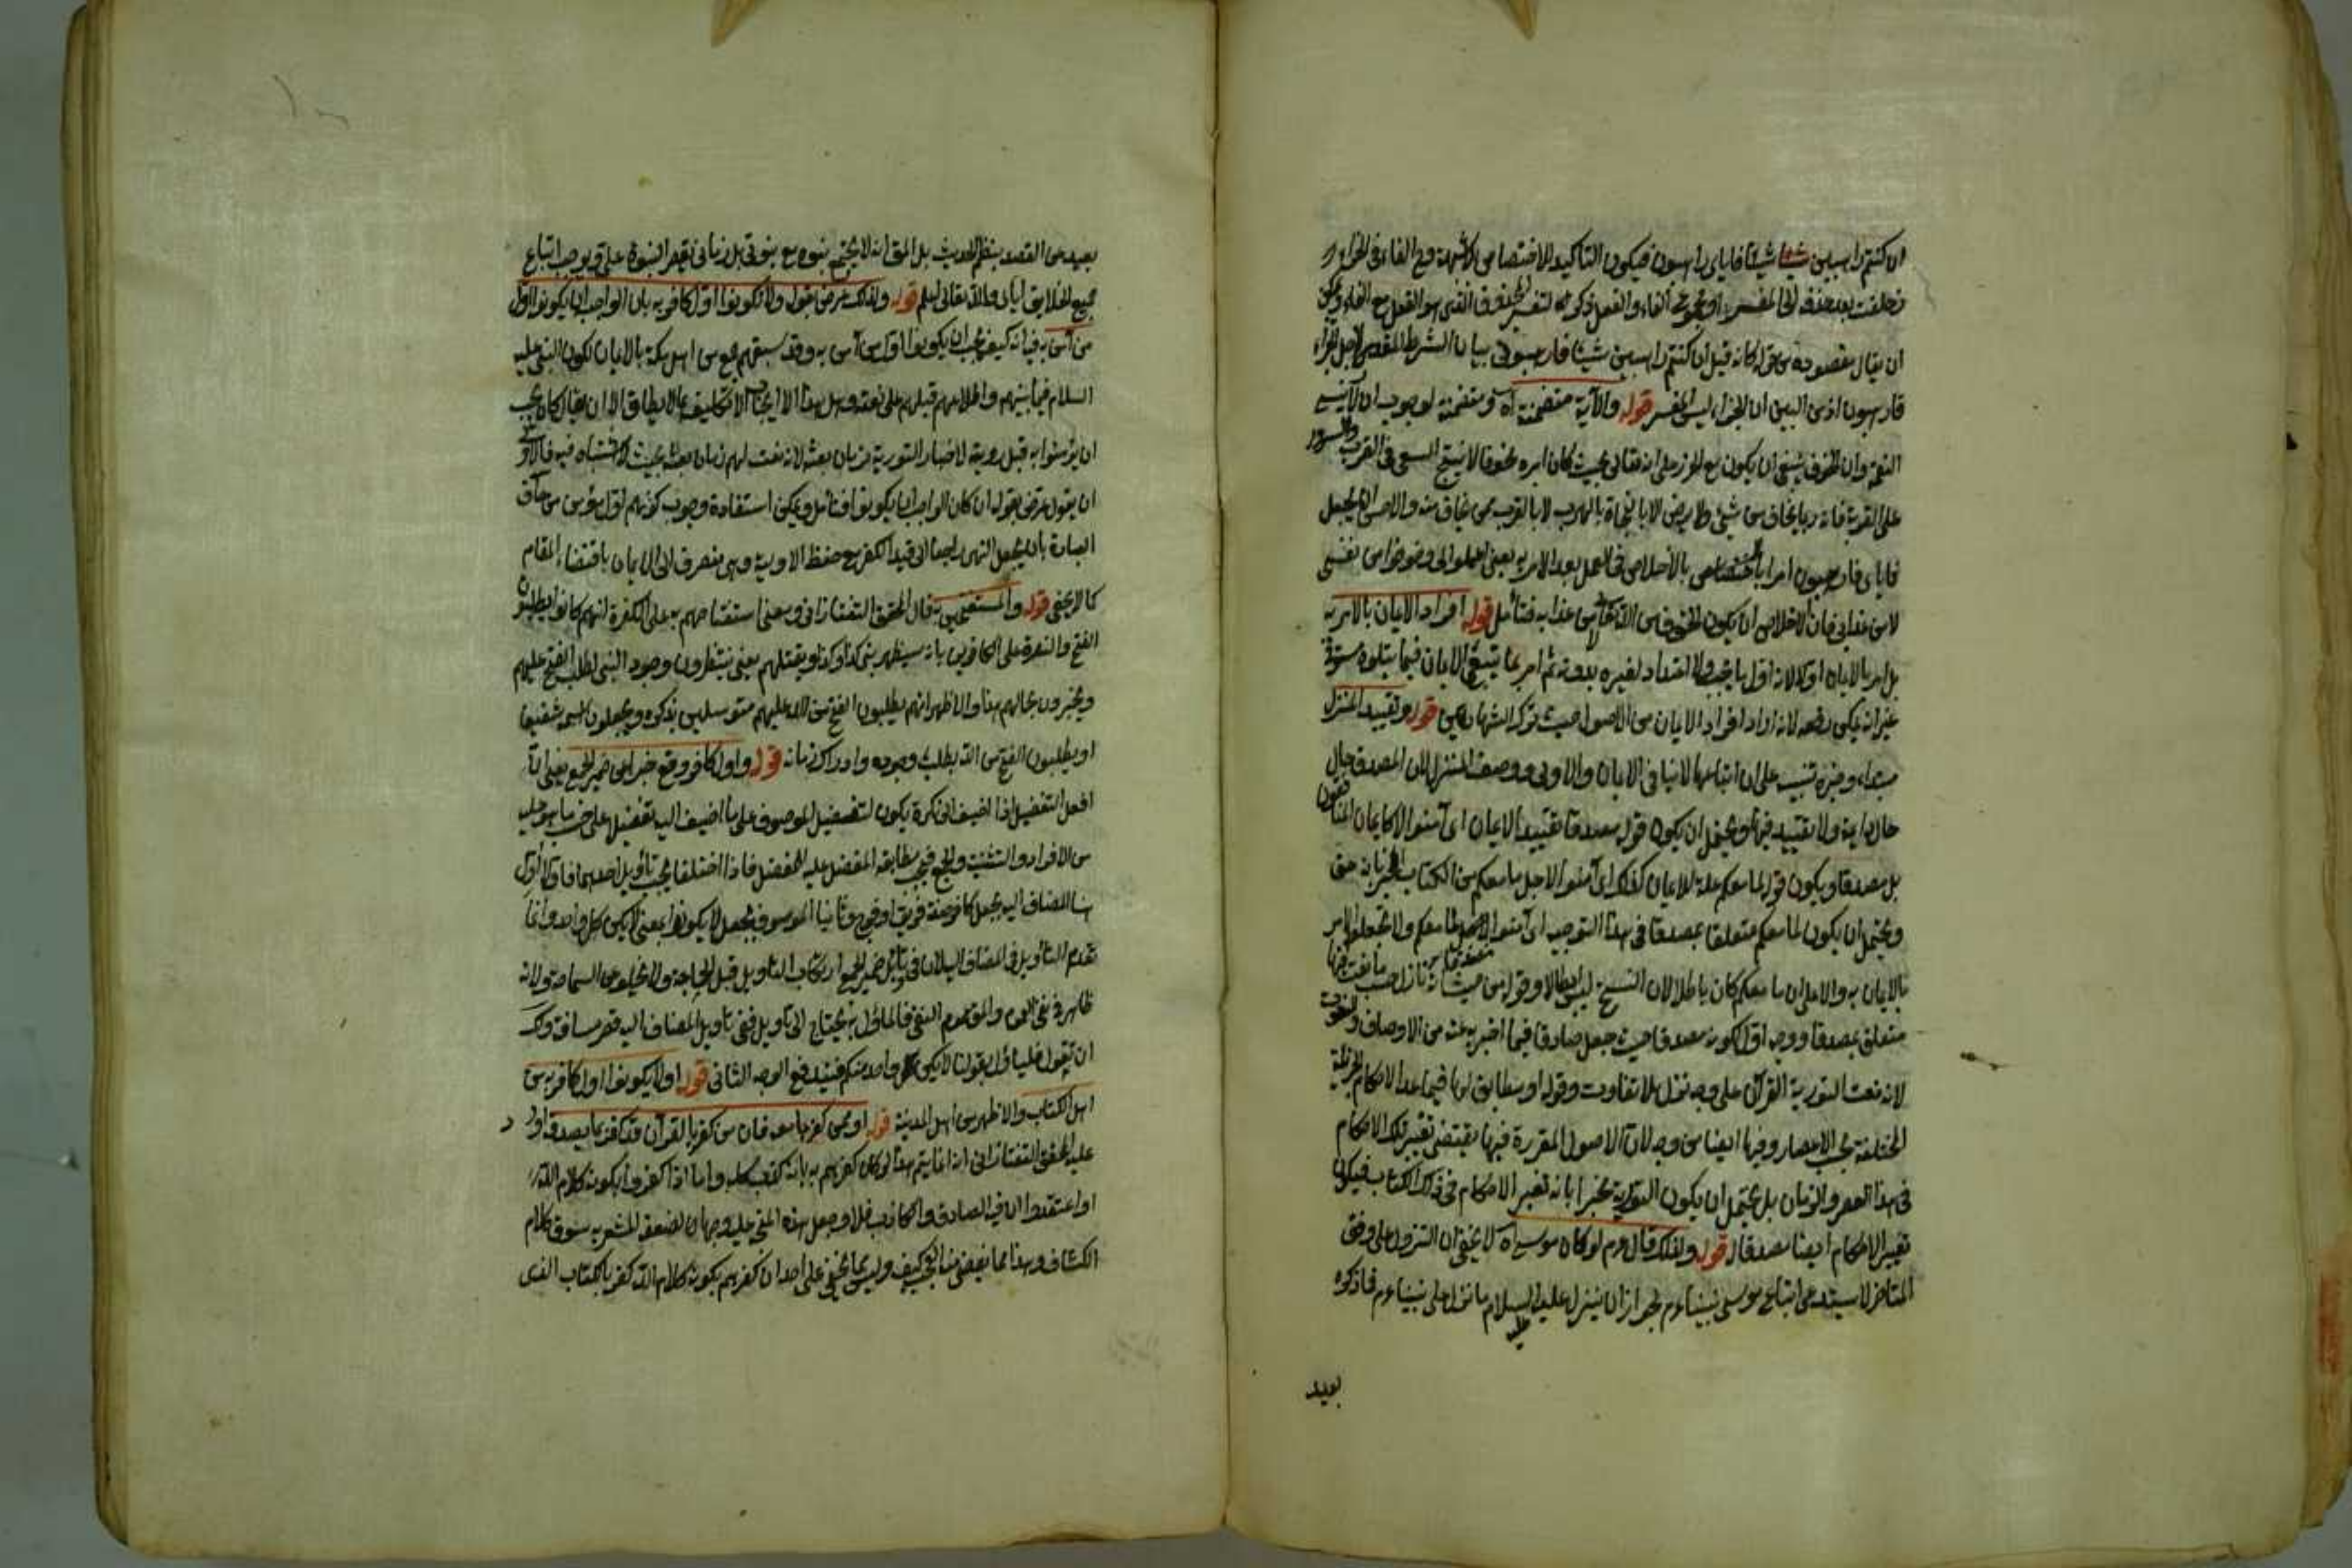 ان كنتم راهبين شيئا شيئا فاياي راهبون فيكون التأكيد للاختصاص
ان يقال مقصوده من قوله كانه قيل ان كنتم راهبين شيئا فارهبوني بيان الشرط المقدر لاجل الجزاء
فارهبون اذ من البين ان الجزاء ليس المفسر قوله والآية متضمنة اه ومتضمنة لوجوب
النعمة وان الخوف ينبغي ان يكون مع الحزم على انه تعالى بحيث كان
على القوية فانه ربما يخاف من شيء ولا يرضى الا بالنجاة بالهرب لا بالقرب ممن يخاف منه والاحسن ان يجعل
فاياي فارهبون امرا بالاخلاص في العمل بعد الامر به يعني اعملوا لي وخوفوا من نفسي
لا من عذابي فان الاخلاص ان يكون الخوف من الله تعالى لا من عذابه فتأمل قوله افراد الايمان بالامر به
بل امر بالايمان اولا لانه اول ما يجب ولا اعتداد لغيره بدونه ثم امر بما يتبع الايمان فيما يتلوه
غير انه يمكن دفعه لانه اراد افراد الايمان من الاصول حيث ترك الشهادتين قوله وتقييد المنزل
مبتدأ وخبره تنبيه على ان اتباعها لا ينافي الايمان والاولى ووصف المنزل لان المصدق حال
ولا تقييد فيها ويحتمل ان يكون قوله مصدقا تقييدا للايمان اي آمنوا لا كايمان المنافقون
بل مصدقا ويكون قوله لما معكم علة للايمان كذلك اي آمنوا لاجل ما معكم من الكتاب المخبر بانه حق
ويحتمل ان يكون لما معكم متعلقا بمصدقا في هذا التوجيه اي آمنوا لاجل ما معكم ولا تجعلوا الامر
بالايمان به والا على ان ما معكم كان باطلا لان النسخ ليس ابطالا وقوله من حيث انه نازل حسب ما نعت فيها
متعلق بمصدقا ووجه اول لكونه مصدقا حيث جعل صادقا فيما اخبر به عنه من الاوصاف والنعوت
لانه نعت التورية القرآن على وجه نزل بلا تفاوت وقوله او مطابق لها فيما عدا الاحكام الجزئية
المختلفة بحسب الاعصار وفيها ايضا من وجه لان الاصول المقررة فيها يقتضي تغيير تلك الاحكام
في هذا العصر والزمان بل يحتمل ان يكون التورية مخبرا بانه تغير الاحكام في ذلك الكتاب فيكون
تغيير الاحكام ايضا مصدقا قوله ولذلك قال عم لو كان موسى اه لا يخفى ان النزول على وفق
المتأخر لا يستدعي اتباع موسى نبينا عم لجواز ان ينزل عليه السلام ما نزل على نبينا عم فاذكره
بعيد
بعيد عن القصد بنظم الحديث بل المق انه لا يجتمع نبوة مع نبوتي بل زماني يقصر النبوة على ويوجب اتباع
جميع الخلايق اياي والله تعالى اعلم قوله ولذلك عرض بقوله ولا تكونوا اول كافر به بان الواجب ان يكونوا اول
من آمن به فيه انه كيف يجب ان يكونوا اول من آمن به وقد سبقهم جمع من اهل مكة بالايمان لكون النبي عليه
السلام فيما بينهم واطلاعهم قبلهم على نعته وهل هذا الايجاب الا تكليف بما لا يطاق الا ان يقال كان يجب
ان يؤمنوا به قبل رؤية لاخبار التورية من زمان بعثه لانه نعت لهم زمان بعثه بحيث لا اشتباه فيه فالاولى
ان يقول عرض بقوله ان كان الواجب ان يكونوا فتأمل ويمكن استفادة وجوب كونهم اول مؤمن من حاق
العبارة بان يجعل النهي راجعا الى قيد الكفر مع حفظ الاولية وهي تنصرف الى الايمان باقتضاء المقام
كما لا يخفى قوله والمستفتحين به قال المحقق التفتازاني ومعنى استفتاحهم به على الكفرة انهم كانوا يطلبون
الفتح والنصرة على الكافرين بانه سيظهر نبي كذا وكذا ويقتلهم يعني ينتظرون وجود النبي لطلب الفتح عليهم
ويخبرون بحالهم هذا والاظهر انهم يطلبون الفتح من الله عليهم متوسلين بذكره ويجعلون اسمه شفيعا
او يطلبون الفتح من الله بطلب وجوده وادراك زمانه قوله واول كافر وقع خبرا عن ضمير الجمع يعني ان
افعل التفضيل اذا اضيف الى نكرة يكون لتفضيل الموصوف على ما اضيف اليه تفضيل على حسب ما هو عليه
من الافراد والتثنية والجمع فيجب مطابقة المفضل عليه للمفضل فاذا اختلفا يجب تأويل احدهما فاولا اول
هنا المضاف اليه بجعل كافر صفة فريق او فوج وثانيا الموصوف بجعل لا يكونوا بمعنى لا يكن كل واحد وانما
قدم التأويل في المضاف اليه لان في تأويل ضمير الجمع ارتكاب التأويل قبل الحاجة ولا يخلو عن السماجة ولانه
ظاهر في نفي العموم والمق عموم النفي فالمأول به يحتاج الى تأويل ففي تأويل المضاف اليه قصر مسافة ولك
ان تقول فليأول بقولنا لا يكن كل واحد منكم فيندفع الوجه الثاني قوله او لا يكونوا اول كافر به من
اهل الكتاب والاظهر من اهل المدينة قوله او ممن كفر بما معه فان من كفر بالقرآن فقد كفر بما يصدقه اورد
عليه المحقق التفتازاني انه انما يتم هذا لو كان كفرهم به بانه كذب كله واما اذا كفروا بكونه كلام الله
او اعتقدوا ان فيه الصادق والكاذب فلا وجعل هذه المنح عليه وجها لضعفه المشعر به سوق كلام
الكشاف وهذا مما يقضي منه العجب كيف وليس مما يخفى على احد ان كفرهم بكونه كلام الله كفر بالكتاب الذي